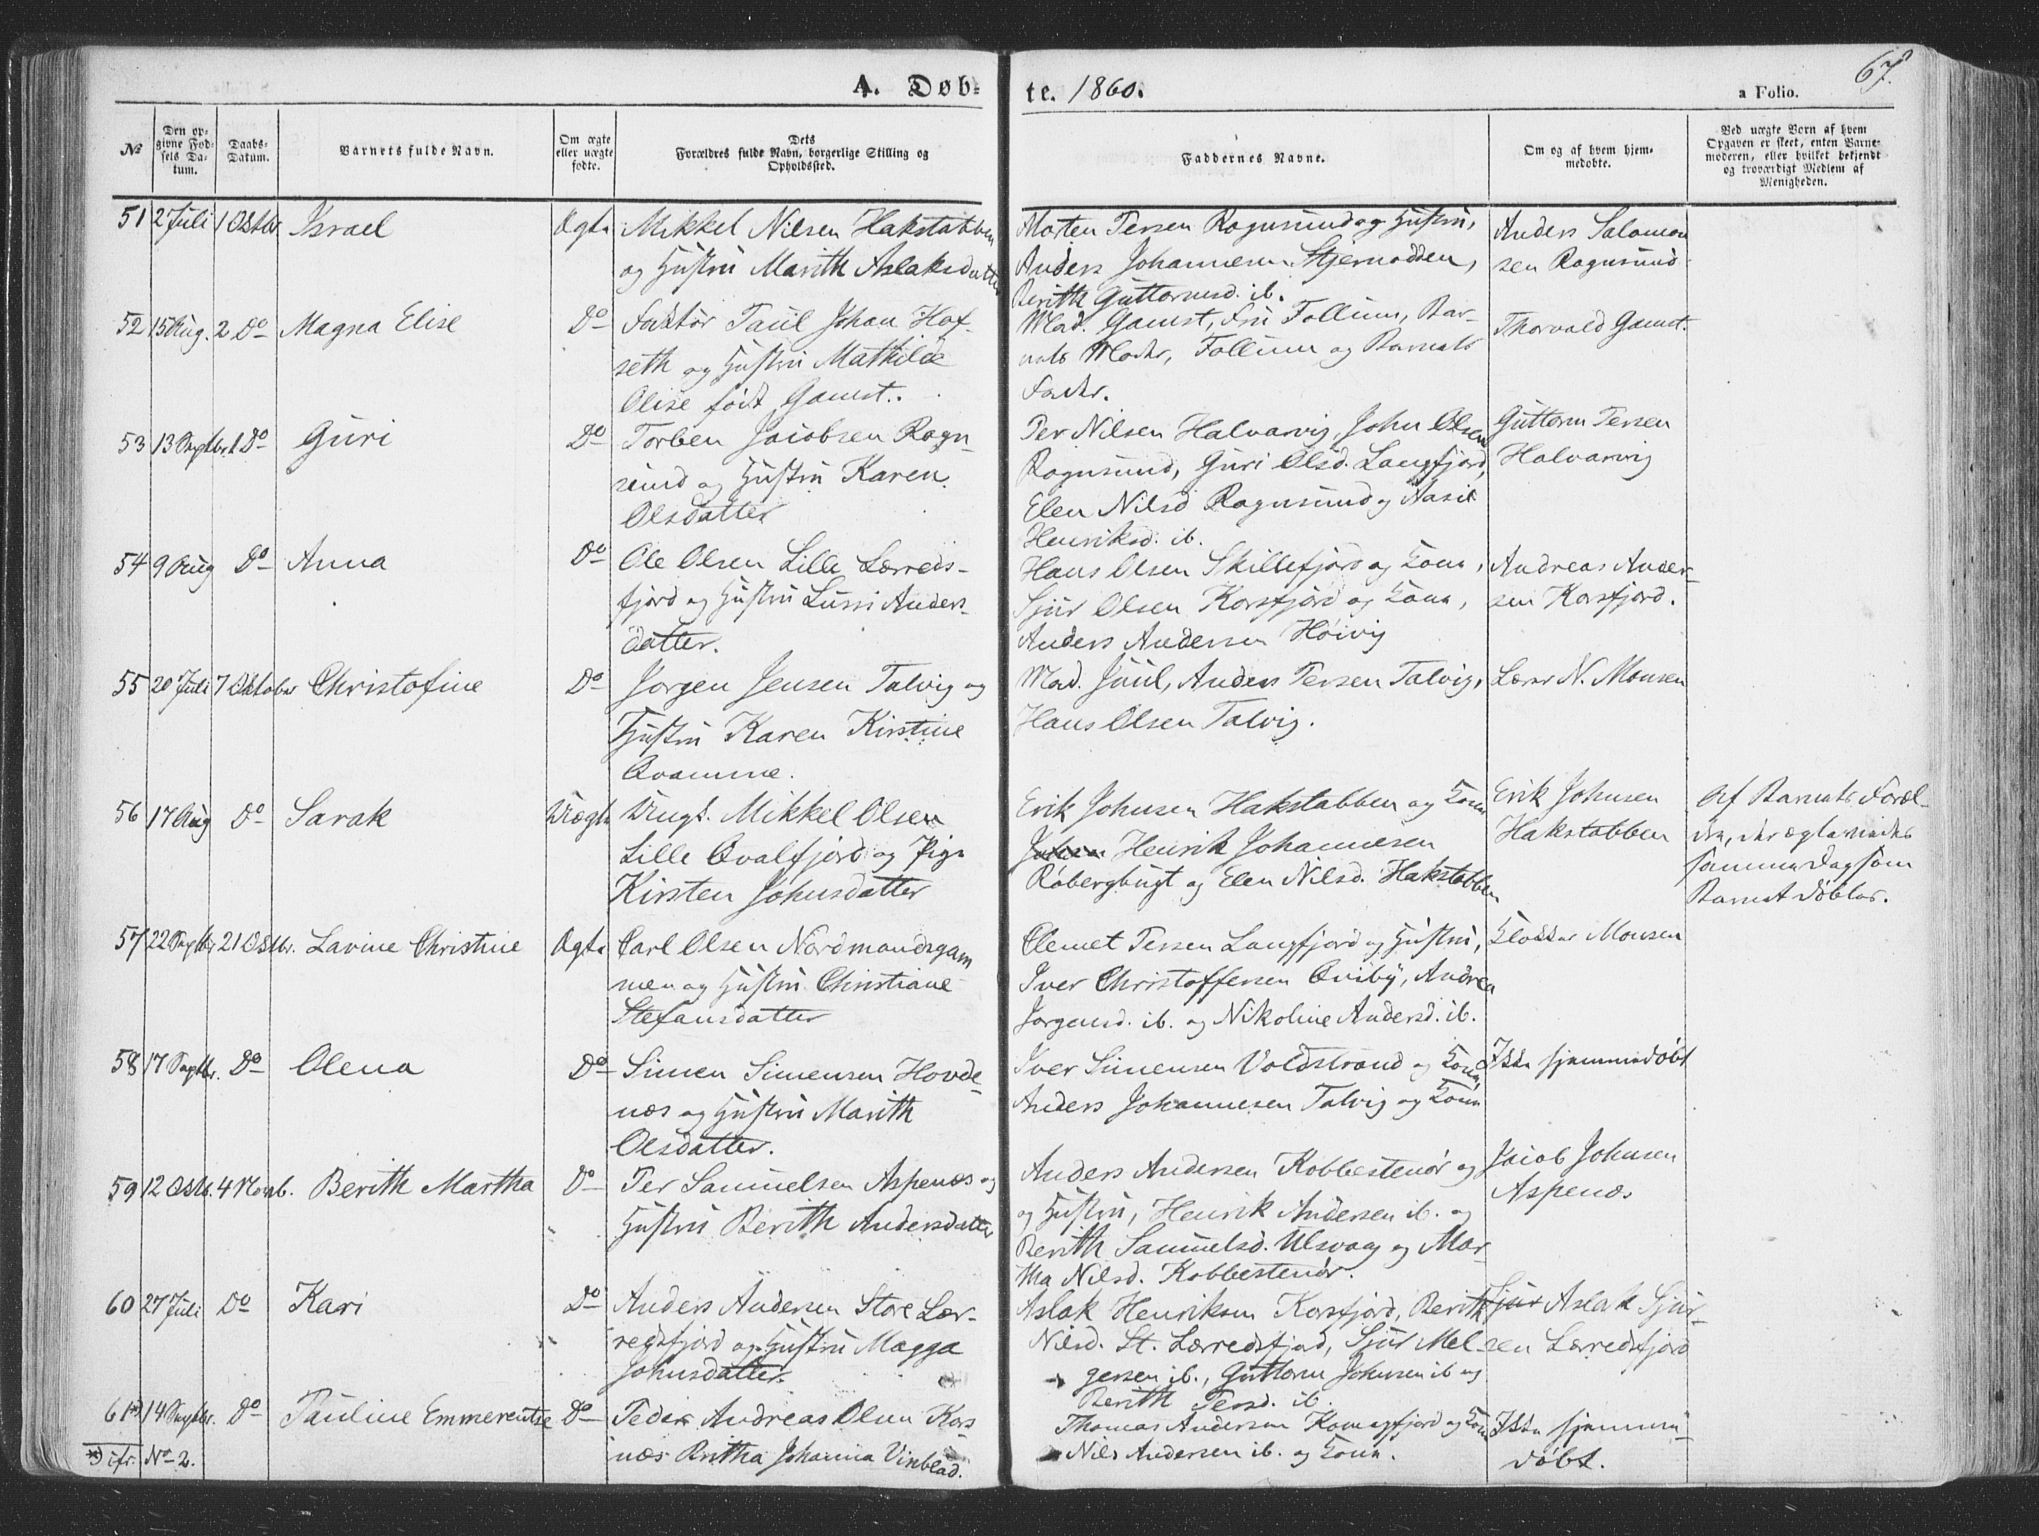 A. Døbte. 1860.
a Folio. 67.
№ | Den opgivne Fødsels Datum. | Daabs-Datum. | Barnets fulde Navn. | Om ægte eller uægte fødte. | Dets Forældres fulde Navn, borgerlige Stilling og Opholdsted. | Faddernes Navne. | Om og af hvem hjemmedøbte. | Ved uægte Børn af hvem Opgaven er skeet, enten Barnemoderen, eller hvilket bekjendt og troværdigt Medlem af Menigheden.
51 2 Juli 1 Oktbr. Israel Ægte Mikkel Nilsen Hakstabben
og Hustru Marith Aslaksdatter
Morten Persen Rognsund og Hustru,
Anders Johannesen Stjernodden,
Berith Guttormsd. ib.
Anders Salomon
sen Rognsund
52 15 Aug. 2 Do Magna Elise Do Faktor Paul Johan Hof-
seth og Hustru Mathilde
Elise født Gamst.
Mad. Gamst, Fru Follum, Bar-
nets Moder, Follum og Barnets
Fader.
Thorvald Gamst.
53 13 Septbr. 1 Do Guri Do Torben Jacobsen Rogn-
sund og Hustru Karen
Olsdatter
Per Nilsen Halvarvig, John Olsen
Rognsund, Guri Olsd. Langfjord,
Elen Nilsd Rognsund og Aasil
Henriksd. ib.
Guttorm Persen
Halvarvig
54 9 Aug Do Anna Do Ole Olsen Lille Lerreds-
fjord og Hustru Lussi Anders-
datter.
Hans Olsen Skillefjord og Kone,
Sjur Olsen Korsfjord og Kone,
Anders Andersen Høivig
Andreas Ander-
sen Korsfjord.
55 20 Juli 7 Oktober Christofine Do Jørgen Jensen Talvig og
Hustru Karen Kirstine
Qvamme.
Mad. Juul, Anders Persen Talvig,
Hans Olsen Talvig.
Lærer N. Monsen
56 17 Aug Do Sarak Uægte Ungk. Mikkel Olsen
Lille Qvalfjord og Pige
Kirsten Johnsdatter
Erik Johnsen Hakstabben og Kone
Henrik Johannesen
Røbergbugt og Elen Nilsd. Hakstabben
Erik Johnsen
Hakstabben
Af Barnets Foræl-
dre, der ægteviedes
samme Dag som
Barnet døbtes.
57 22 Septbr 21 Oktbr. Lavine Christine Ægte Carl Olsen Nordmandsgam
men og Hustru Christiane
Stefansdatter
Clemet Persen Langfjord og Hustru,
Iver Christoffersen Qviby, Andrea
Jørgensd. ib. og Nikoline Andersd. ib.
Klokker Monsen
58 17 Septbr. Do Olena Do Simen Simensen Hovde-
næs og Hustru Marith
Olsdatter.
Iver Simensen Voldstrand og Kone,
Anders Johannesen Talvig og Kone
Ikke hjemmedøbt
59 12 Oktb. 4 Novb. Berith Martha Do Per Samuelsen Aspenæs og
Hustru Berith Andersdatter
Anders Andersen Kobbestenør og
og Hustru, Henrik Andersen ib. og
Berith Samuelsd. Ulsvaag og Mar-
tha Nilsd. Kobbestenør.
Jacob Johnsen
Aspenæs
60 27 Juli Do Kari Do Anders Andersen Store Ler-
redsfjord og Hustru Magga
Johnsdatter.
Aslak Henriksen Korsfjord, Berith
Nilsd. St. Lerredsfjord, Sjur Mel-
gersen ib., Guttorm Johnsen ib og
Berith Persd. ib.
Sjur Aslak Sjur-
sen Lerredsfjord
61*) 14 Septbr. Do Pauline Emmerentse Do Peder Andreas Olsen Kors
næs Britha Johanna Vinblad.
Thomas Andersen Komagfjord og Kone
Nils Andersen ib. og Kone.
Ikke hjemme-
døbt.
*) cfr. No 2.